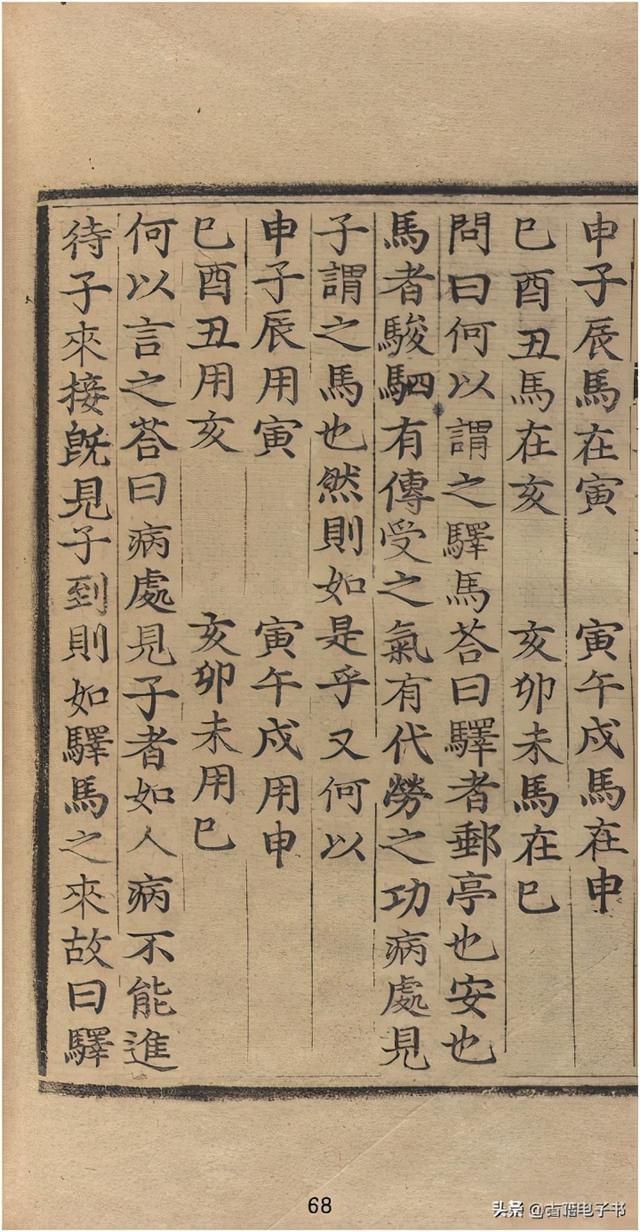 申子辰馬在寅　寅午戌馬在申
巳酉丑馬在亥　亥卯未馬在巳
問曰何以謂之驛馬荅曰驛者郵亭也安也
馬者駿駟有傳受之氣有代勞之功病處見
子謂之馬也然則如是乎又何以
申子辰用寅　寅午戌用申
巳酉丑用亥　亥卯未用巳
何以言之荅曰病處見子者如人病不能進
待子來接旣見子到則如驛馬之來故曰驛
68
头条 @古籍电子书